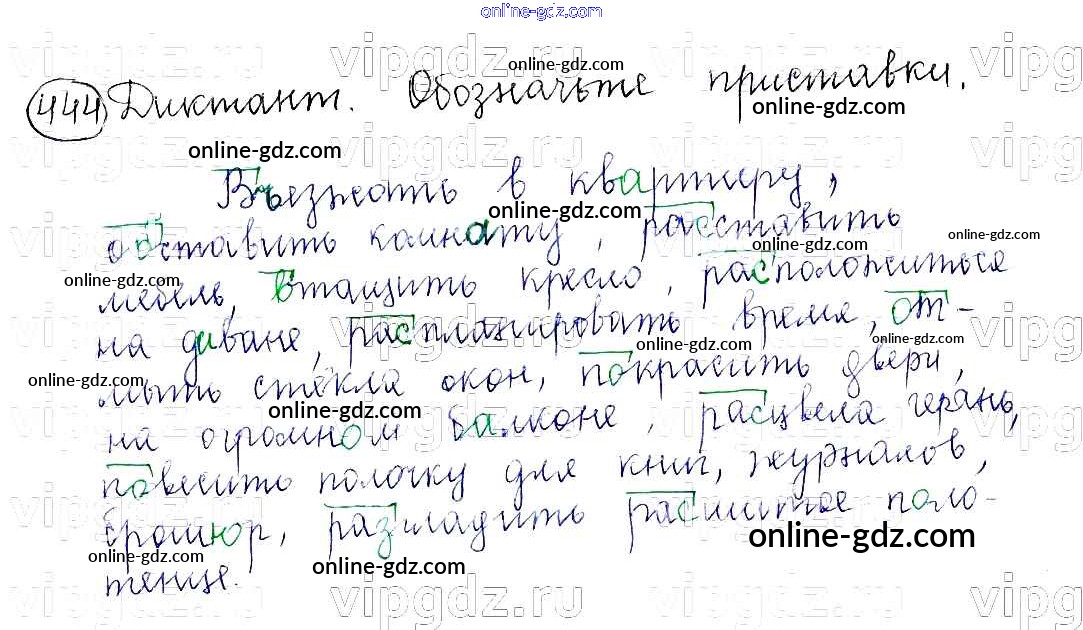 online-gdz.com
444 Диктант. Обозначьте приставки.
Въезжать в квартиру,
обставить комнату, расставить
мебель, втащить кресло, расположиться
на диване, распланировать время, от-
мыть стёкла окон, покрасить двери,
на огромном балконе, расцвела герань,
повесить полочку для книг, журналов,
брошюр, разгладить расшитое поло-
тенце.